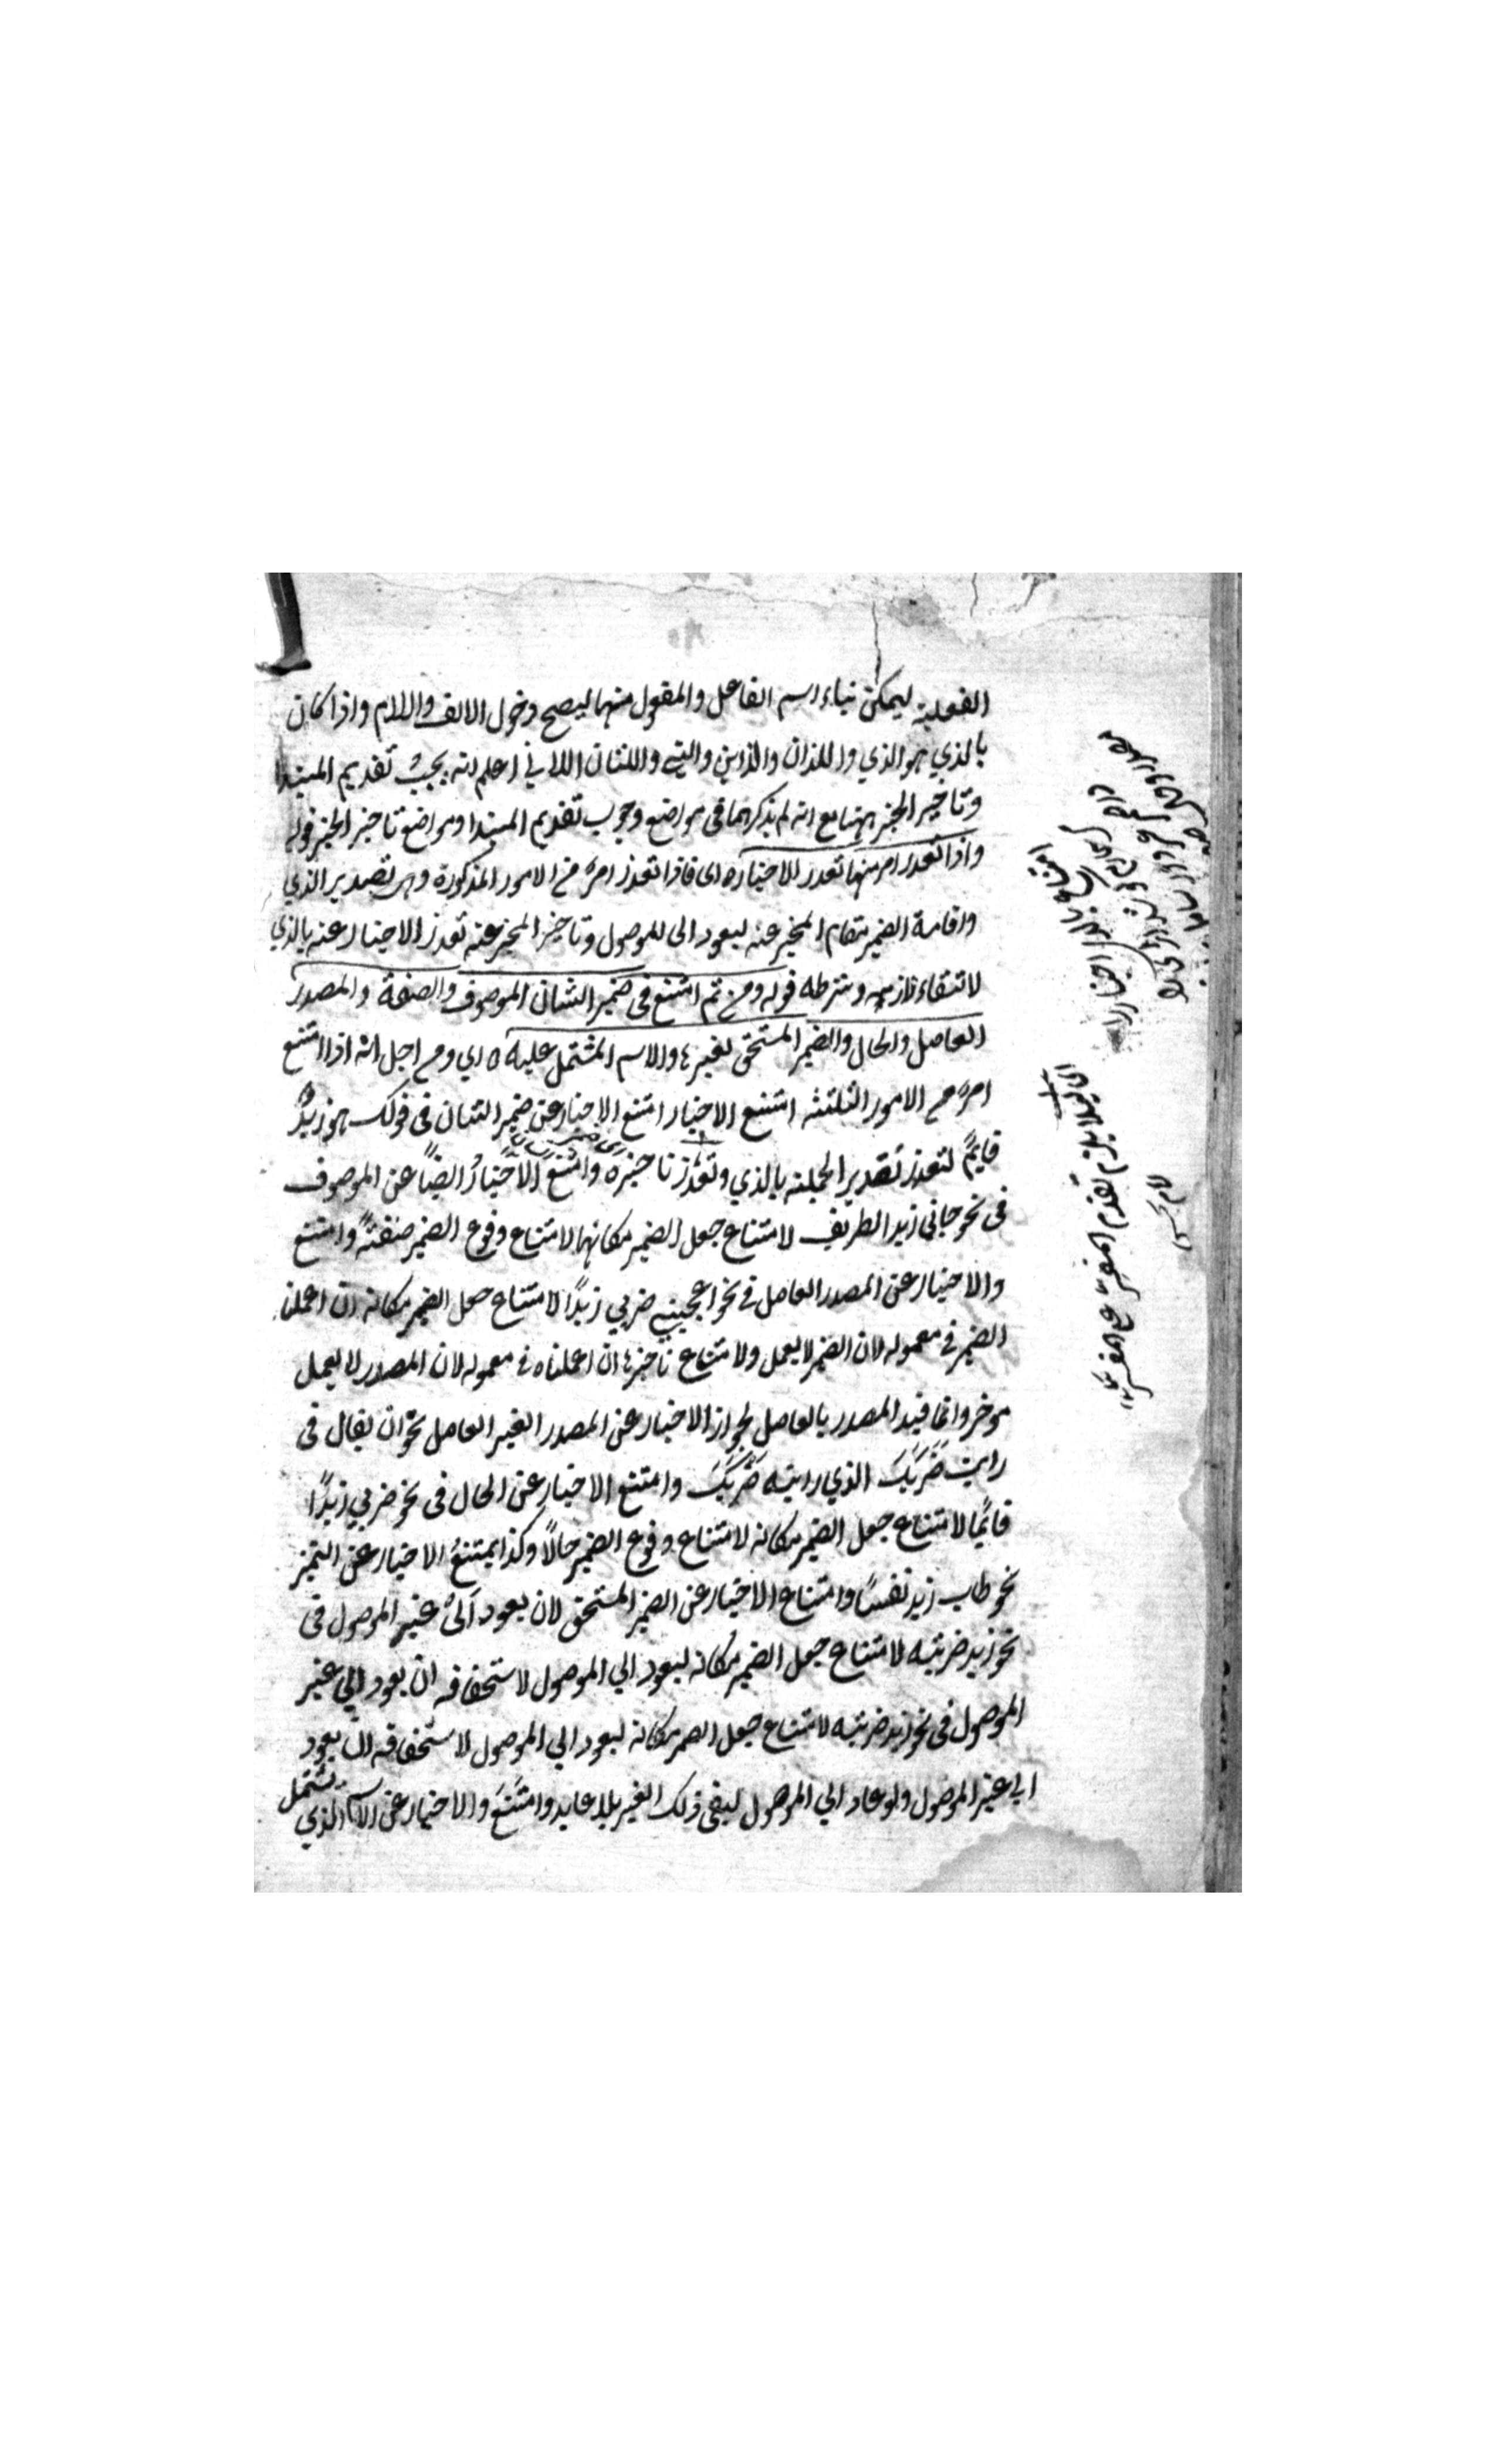 الفعلية ليمكن بناء اسم الفاعل والمفعول منهما ليصح دخول الالف واللام واذا كان
بالذي هو الذي واللذان والذاين والتي واللتان اللاتي اعلم انه يجب تقديم المبتدا
وتاخير الخبر ههنا مع انه لم يذكرهما في مواضع وجوب تقديم المبتدا ومواضع تاخير الخبر قوله
واذا تعذر امر منها تعذر الاخبار ه اى فاذا تعذر امر من الامور المذكورة وهي تصدير الذي
واقامة الضمير مقام المخبر عنه ليعود الى الموصول وتاخير المخبر عنه تعذر الاخبار عنه بالذي
لانتفاء لازمه وشرطه قوله ومن ثم امتنع في ضمير الشان الموصوف والصفة والمصدر
العامل والحال والضمير المستحق لغيرها والاسم المشتمل عليه ه اي ومن اجل انه اذا امتنع
امر من الامور الثلثة امتنع الاخبار امتنع الاخبار عن ضمير الشان في قولك هو زيد
قايم لتعذر تصدير الجملة بالذي وتعذر تاخيره وامتنع الاخبار ايضا عن الموصوف
في نحو جاني زيد الظريف لامتناع جعل الضمير مكانها لامتناع وقوع الضمير صفة وامتنع
والاخبار عن المصدر العامل في نحو اعجبني ضربي زيدًا لامتناع جعل الضمير مكانه ان اعملنا
الضمير في معموله لان الضمير لا يعمل ولامتناع تاخيرها ان اعملناه في معموله لان المصدر لا يعمل
موخر وانما قيد المصدر بالعامل لجواز الاخبار عن المصدر الغير العامل نحو ان يقال في
رايت ضَرْبَكَ الذي رايته ضَرْبَكَ وامتنع الاخبار عن الحال في نحو ضربي زيدًا
قائمًا لامتناع جعل الضمير مكانه لامتناع وقوع الضمير حالًا وكذا يمتنع الاخبار عن التميز
نحو طاب زيد نفسًا وامتناع الاخبار عن الضمير المستحق لان يعود الى غير الموصول في
نحو زيد ضربته لامتناع جعل الضمير مكانه ليعود الي الموصول لاستحقاقه ان يعود الي غير
الموصول في نحو زيد ضربته لامتناع جعل الضمير مكانه ليعود الي الموصول لاستحقاقه ان يعود
الي غير الموصول ولو عاد الي الموصول لبقي ذلك الغير بلا عايد وامتنع والاخبار عن الاسم الذي يشتمل